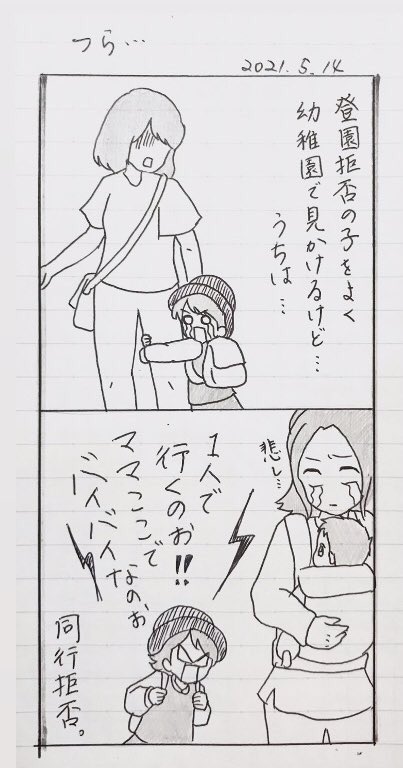 つら…
2021.5.14
登園拒否の子をよく
幼稚園で見かけるけど…
うちは…
悲し…
1人で
行くのぉ!!
ママここで
バイバイなのぉ
同行拒否。